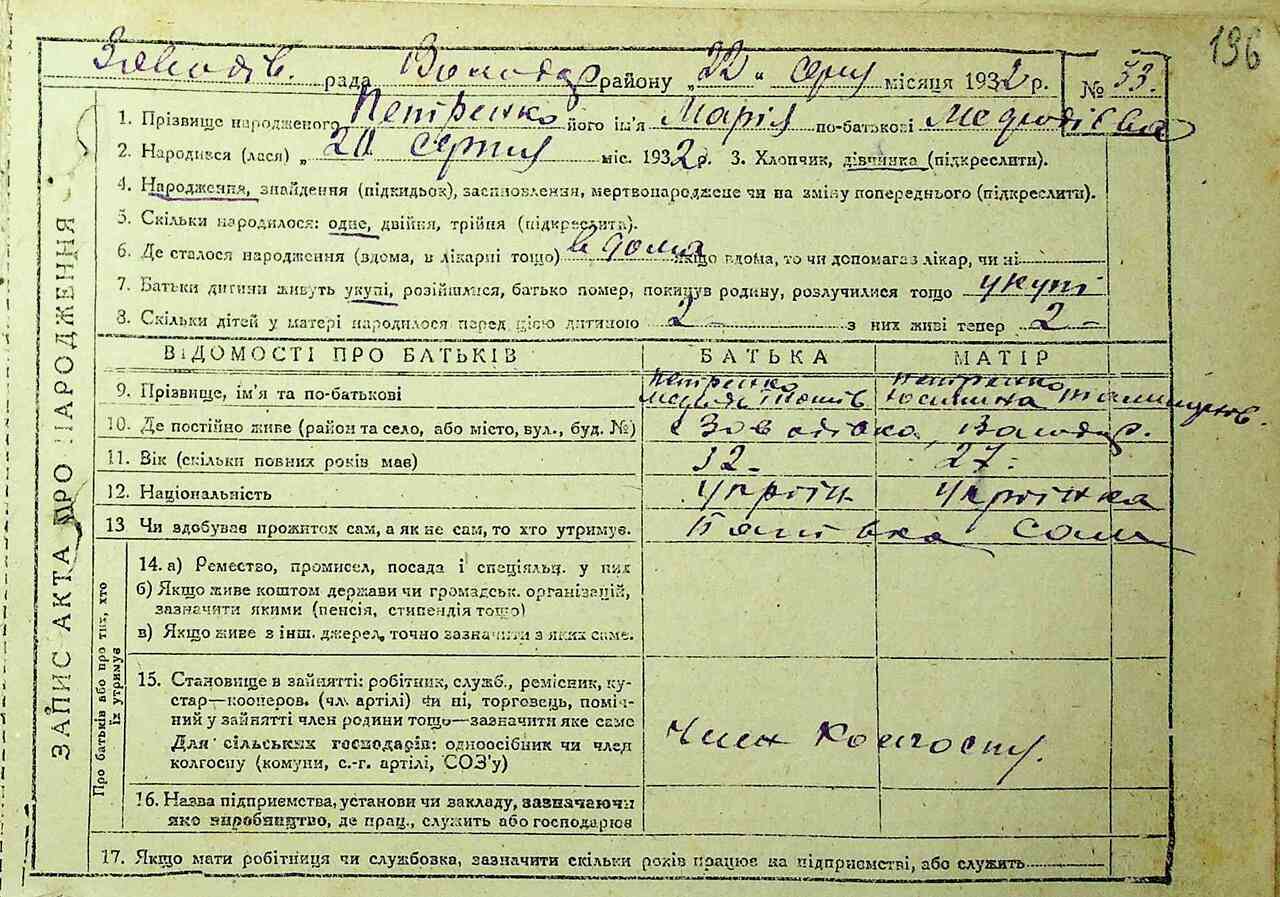 196
Завадів. рада Володар. району „22" серпня місяця 1932 р. № 53.
1. Прізвище народженого Петренко його ім'я Марія по-батькові
2. Народився (лася) „20 серпня міс. 1932 р. 3. Хлопчик, дівчинка (підкреслити).
4. Народження, знайдення (підкидьок), засиновлення, мертвонароджене чи на зміну попереднього (підкреслити).
5. Скільки народилося: одне, двійня, трійня (підкреслити).
6. Де сталося народження (вдома, в лікарні тощо) в дома якщо вдома, то чи допомагав лікар, чи ні
7. Батьки дитини живуть укупі, розійшлися, батько помер, покинув родину, розлучилися тощо укупі
8. Скільки дітей у матері народилося перед цією дитиною 2 – з них живі тепер 2 –
ВІДОМОСТІ ПРО БАТЬКІВ БАТЬКА МАТІР
9. Прізвище, ім'я та по-батькові Петренко Петренко
10. Де постійно живе (район та село, або місто, вул., буд. №) Володар.
11. Вік (скільки повних років має) 32 – 27 –
12. Національність Україн Українка
13 Чи здобуває прожиток сам, а як не сам, то хто утримує. сам
14. а) Ремество, промисел, посада і спеціяльн. у них
б) Якщо живе коштом держави чи громадськ. організацій,
зазначити якими (пенсія, стипендія тощо)
в) Якщо живе з інш. джерел, точно зазначити з яких саме.
15. Становище в зайнятті: робітник, служб., ремісник, ку-
стар—кооперов. (чл. артілі) чи ні, торговець, поміч-
ний у зайнятті член родини тощо—зазначити яке саме
Для сільських господарів: одноосібник чи член
колгоспу (комуни, с.-г. артілі, СОЗ'у)
Член колгоспу.
16. Назва підприємства, установи чи закладу, зазначаючи
яке виробництво, де прац., служить або господарює
17. Якщо мати робітниця чи службовка, зазначити скільки років працює на підприємстві, або служить
ЗАПИС АКТА ПРО НАРОДЖЕННЯ
Про батьків або про тих, хто
їх утримує